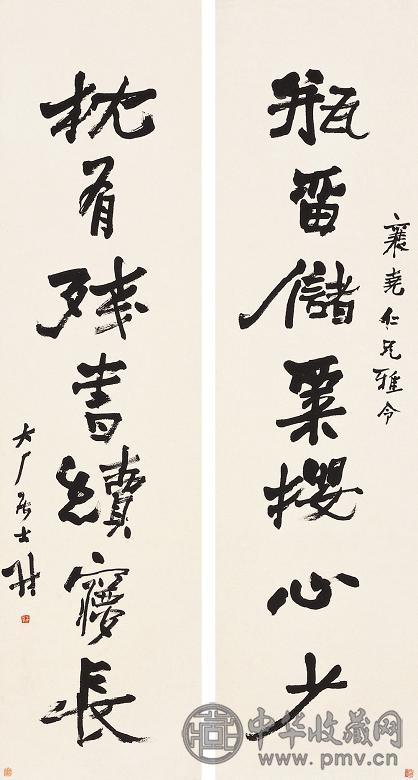 襄堯仁兄雅令
瓶留儲粟攖心少
枕有殘書續夢長
大厂居士
中华收藏网
www.pmv.cn